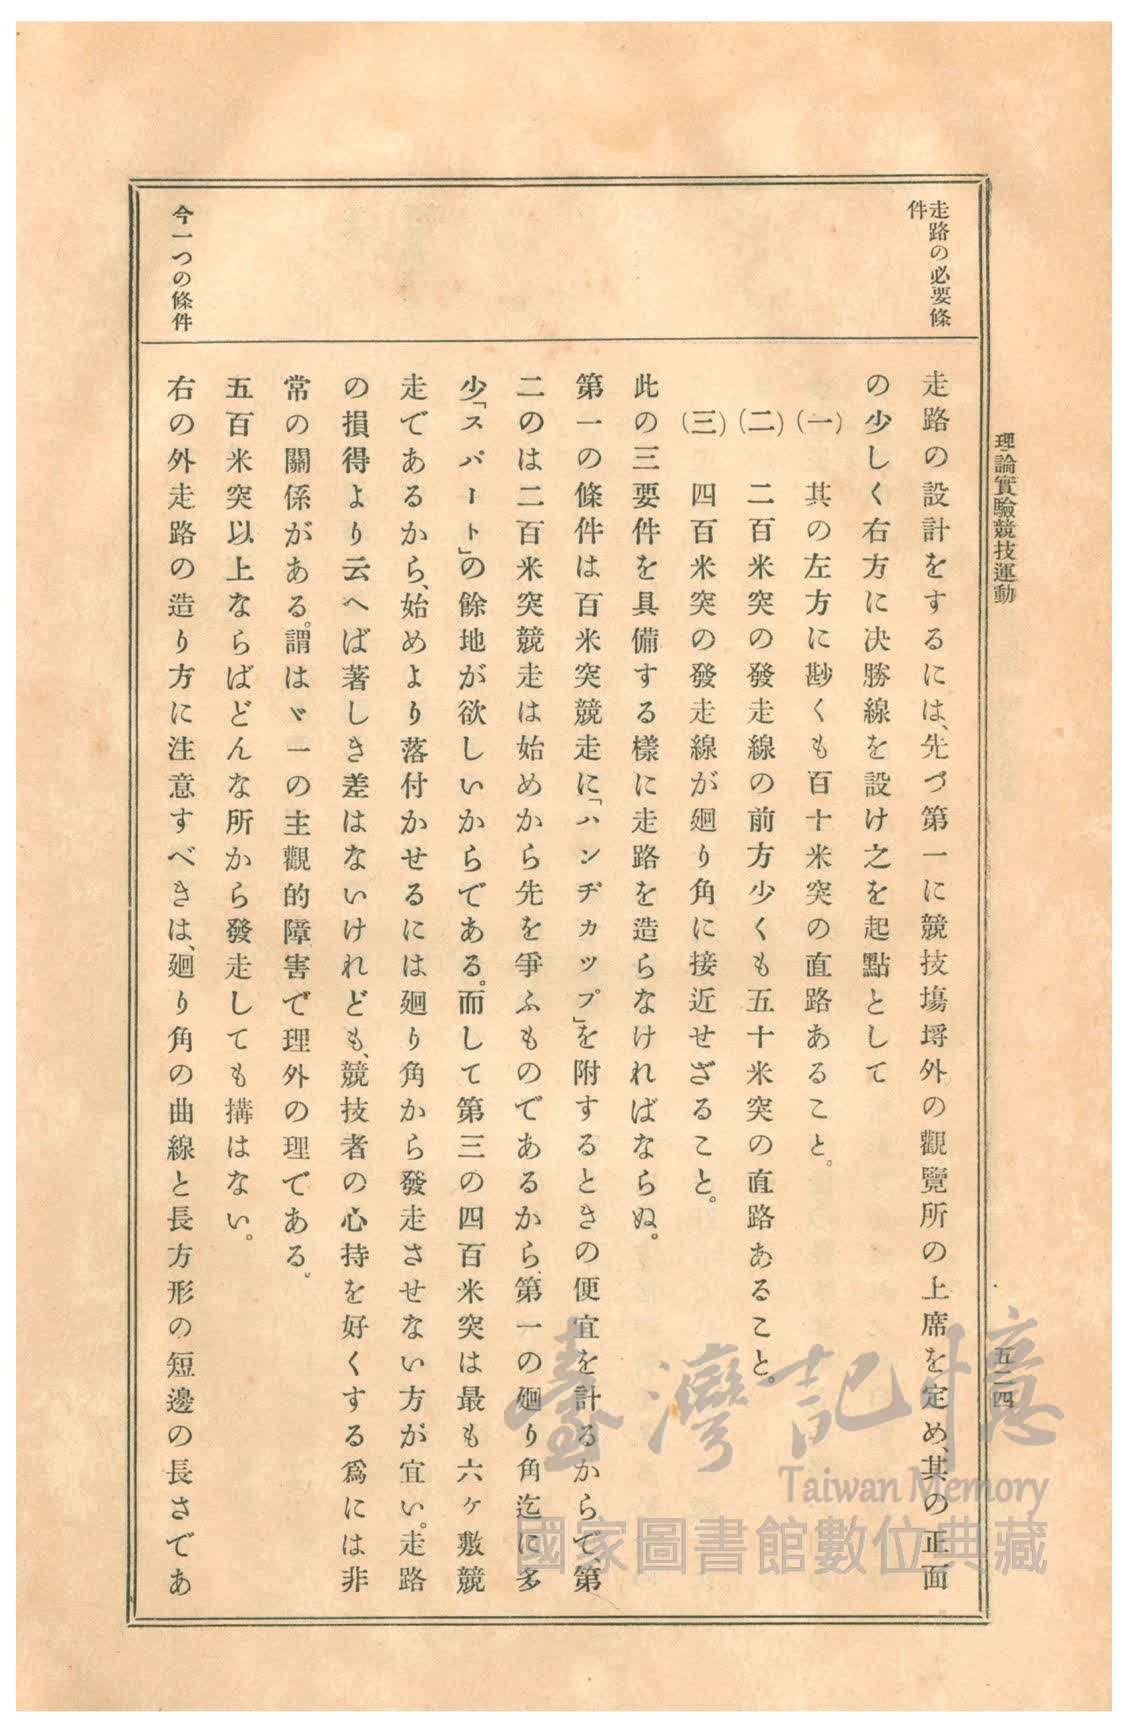 理論實驗競技運動
五二四
走路の必要條
件
走路の設計をするには、先づ第一に競技場埒外の觀覽所の上席を定め、其の正面
の少しく右方に决勝線を設け之を起點として
(一) 其の左方に尠くも百十米突の直路あること。
(二) 二百米突の發走線の前方少くも五十米突の直路あること。
(三) 四百米突の發走線が廻り角に接近せざること。
此の三要件を具備する樣に走路を造らなければならぬ。
第一の條件は百米突競走に「ハンヂカップ」を附するときの便宜を計るからで、第
二のは二百米突競走は始めから先を爭ふものであるから、第一の廻り角迄に多
少「スパート」の餘地が欲しいからである。而して第三の四百米突は最も六ケ敷競
走であるから、始めより落付かせるには廻り角から發走させない方が宜い。走路
の損得より云へば著しき差はないけれども、競技者の心持を好くする爲には非
常の關係がある。謂はヾ一の主觀的障害で理外の理である。
五百米突以上ならばどんな所から發走しても搆はない。
今一つの條件
右の外走路の造り方に注意すべきは、廻り角の曲線と長方形の短邊の長さであ
臺灣記憶
Taiwan Memory
國家圖書館數位典藏